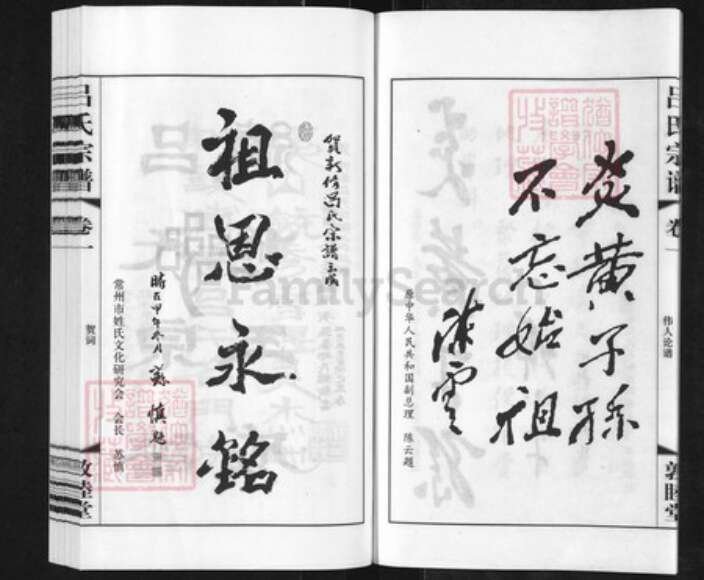 吕氏宗谱
卷一
伟人论谱
敦睦堂
炎黄子孙
不忘始祖
陈云
原中华人民共和国副总理 陈云题
贺新修吕氏宗譜
祖恩永銘
苏慎题
常州市姓氏文化研究会 会长 苏慎
吕氏宗谱
卷一
贺词
敦睦堂
FamilySearch